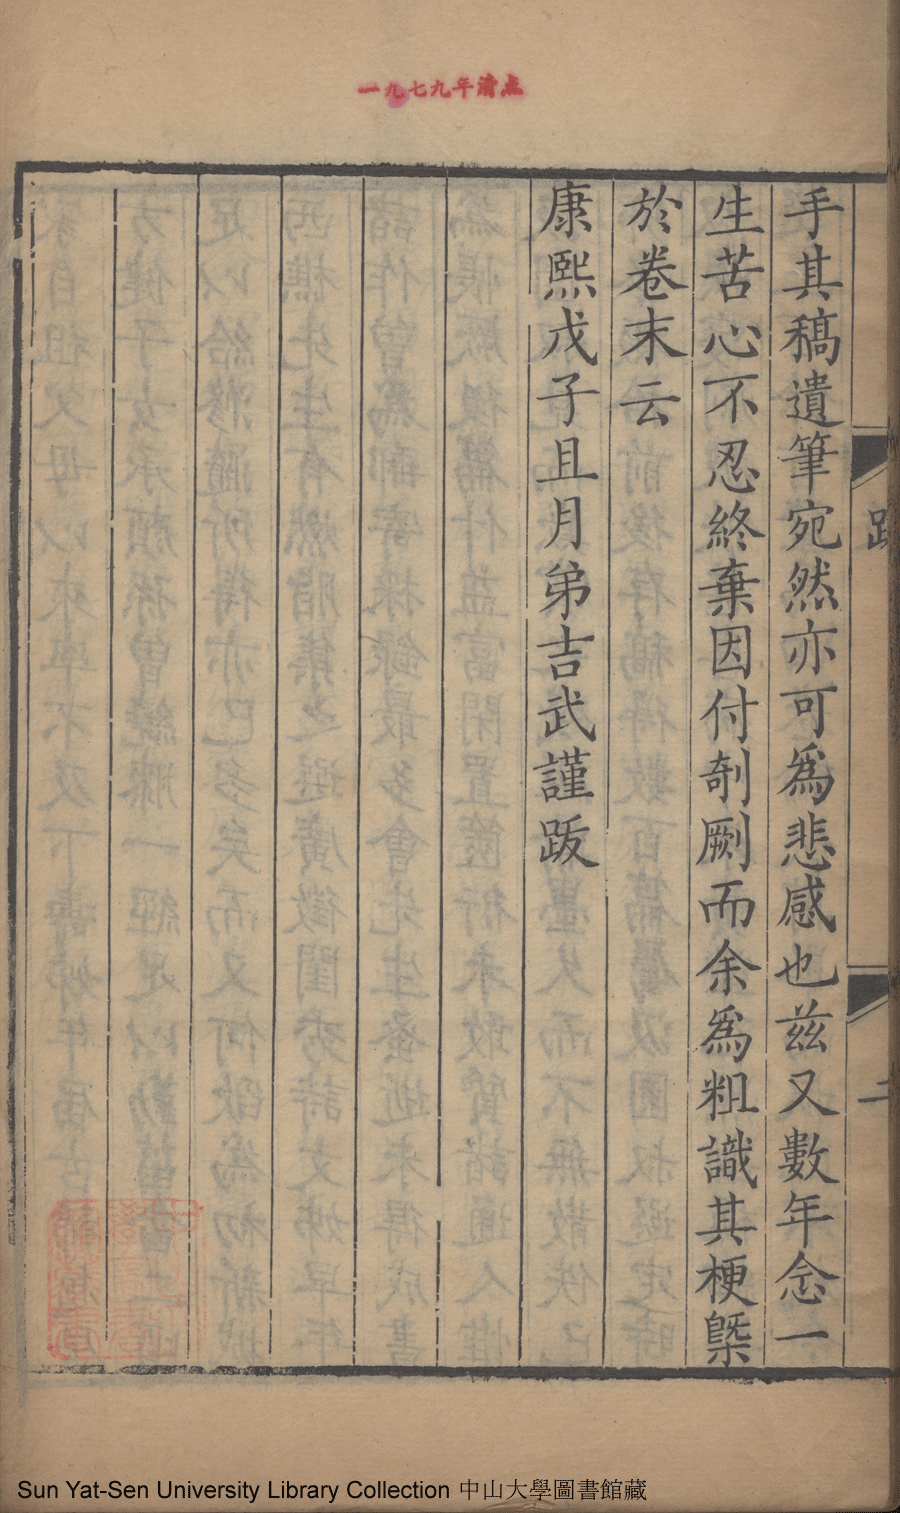 一九七九年清点
手其稿遺筆宛然亦可爲悲感也茲又數年念一
生苦心不忍終棄因付剞劂而余爲粗識其梗槩
於卷末云
康熙戊子且月弟吉武謹跋
跋
二
Sun Yat-Sen University Library Collection 中山大學圖書館藏